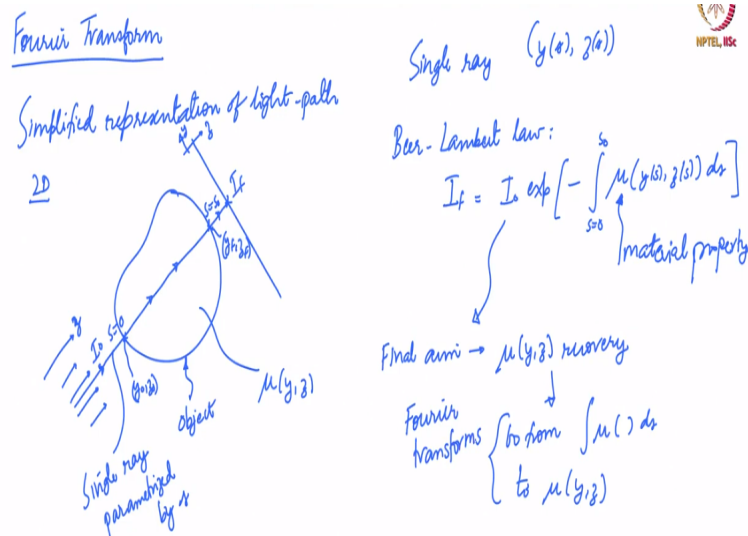 Fourier Transform
Simplified representation of light-path
2D
y
z
I_f
s=s_0
(y_f, z_f)
z
I_0
s=0
(y_0, z_0)
object
μ(y,z)
Single ray
parametrized
by s
Single ray (y(s), z(s))
Beer-Lambert law:
I_f = I_0 exp[-∫_{s=0}^{s_0} μ(y(s), z(s)) ds]
material property
Final aim → μ(y,z) recovery
Fourier
transforms
Go from ∫μ( ) ds
to μ(y,z)
NPTEL, IISc